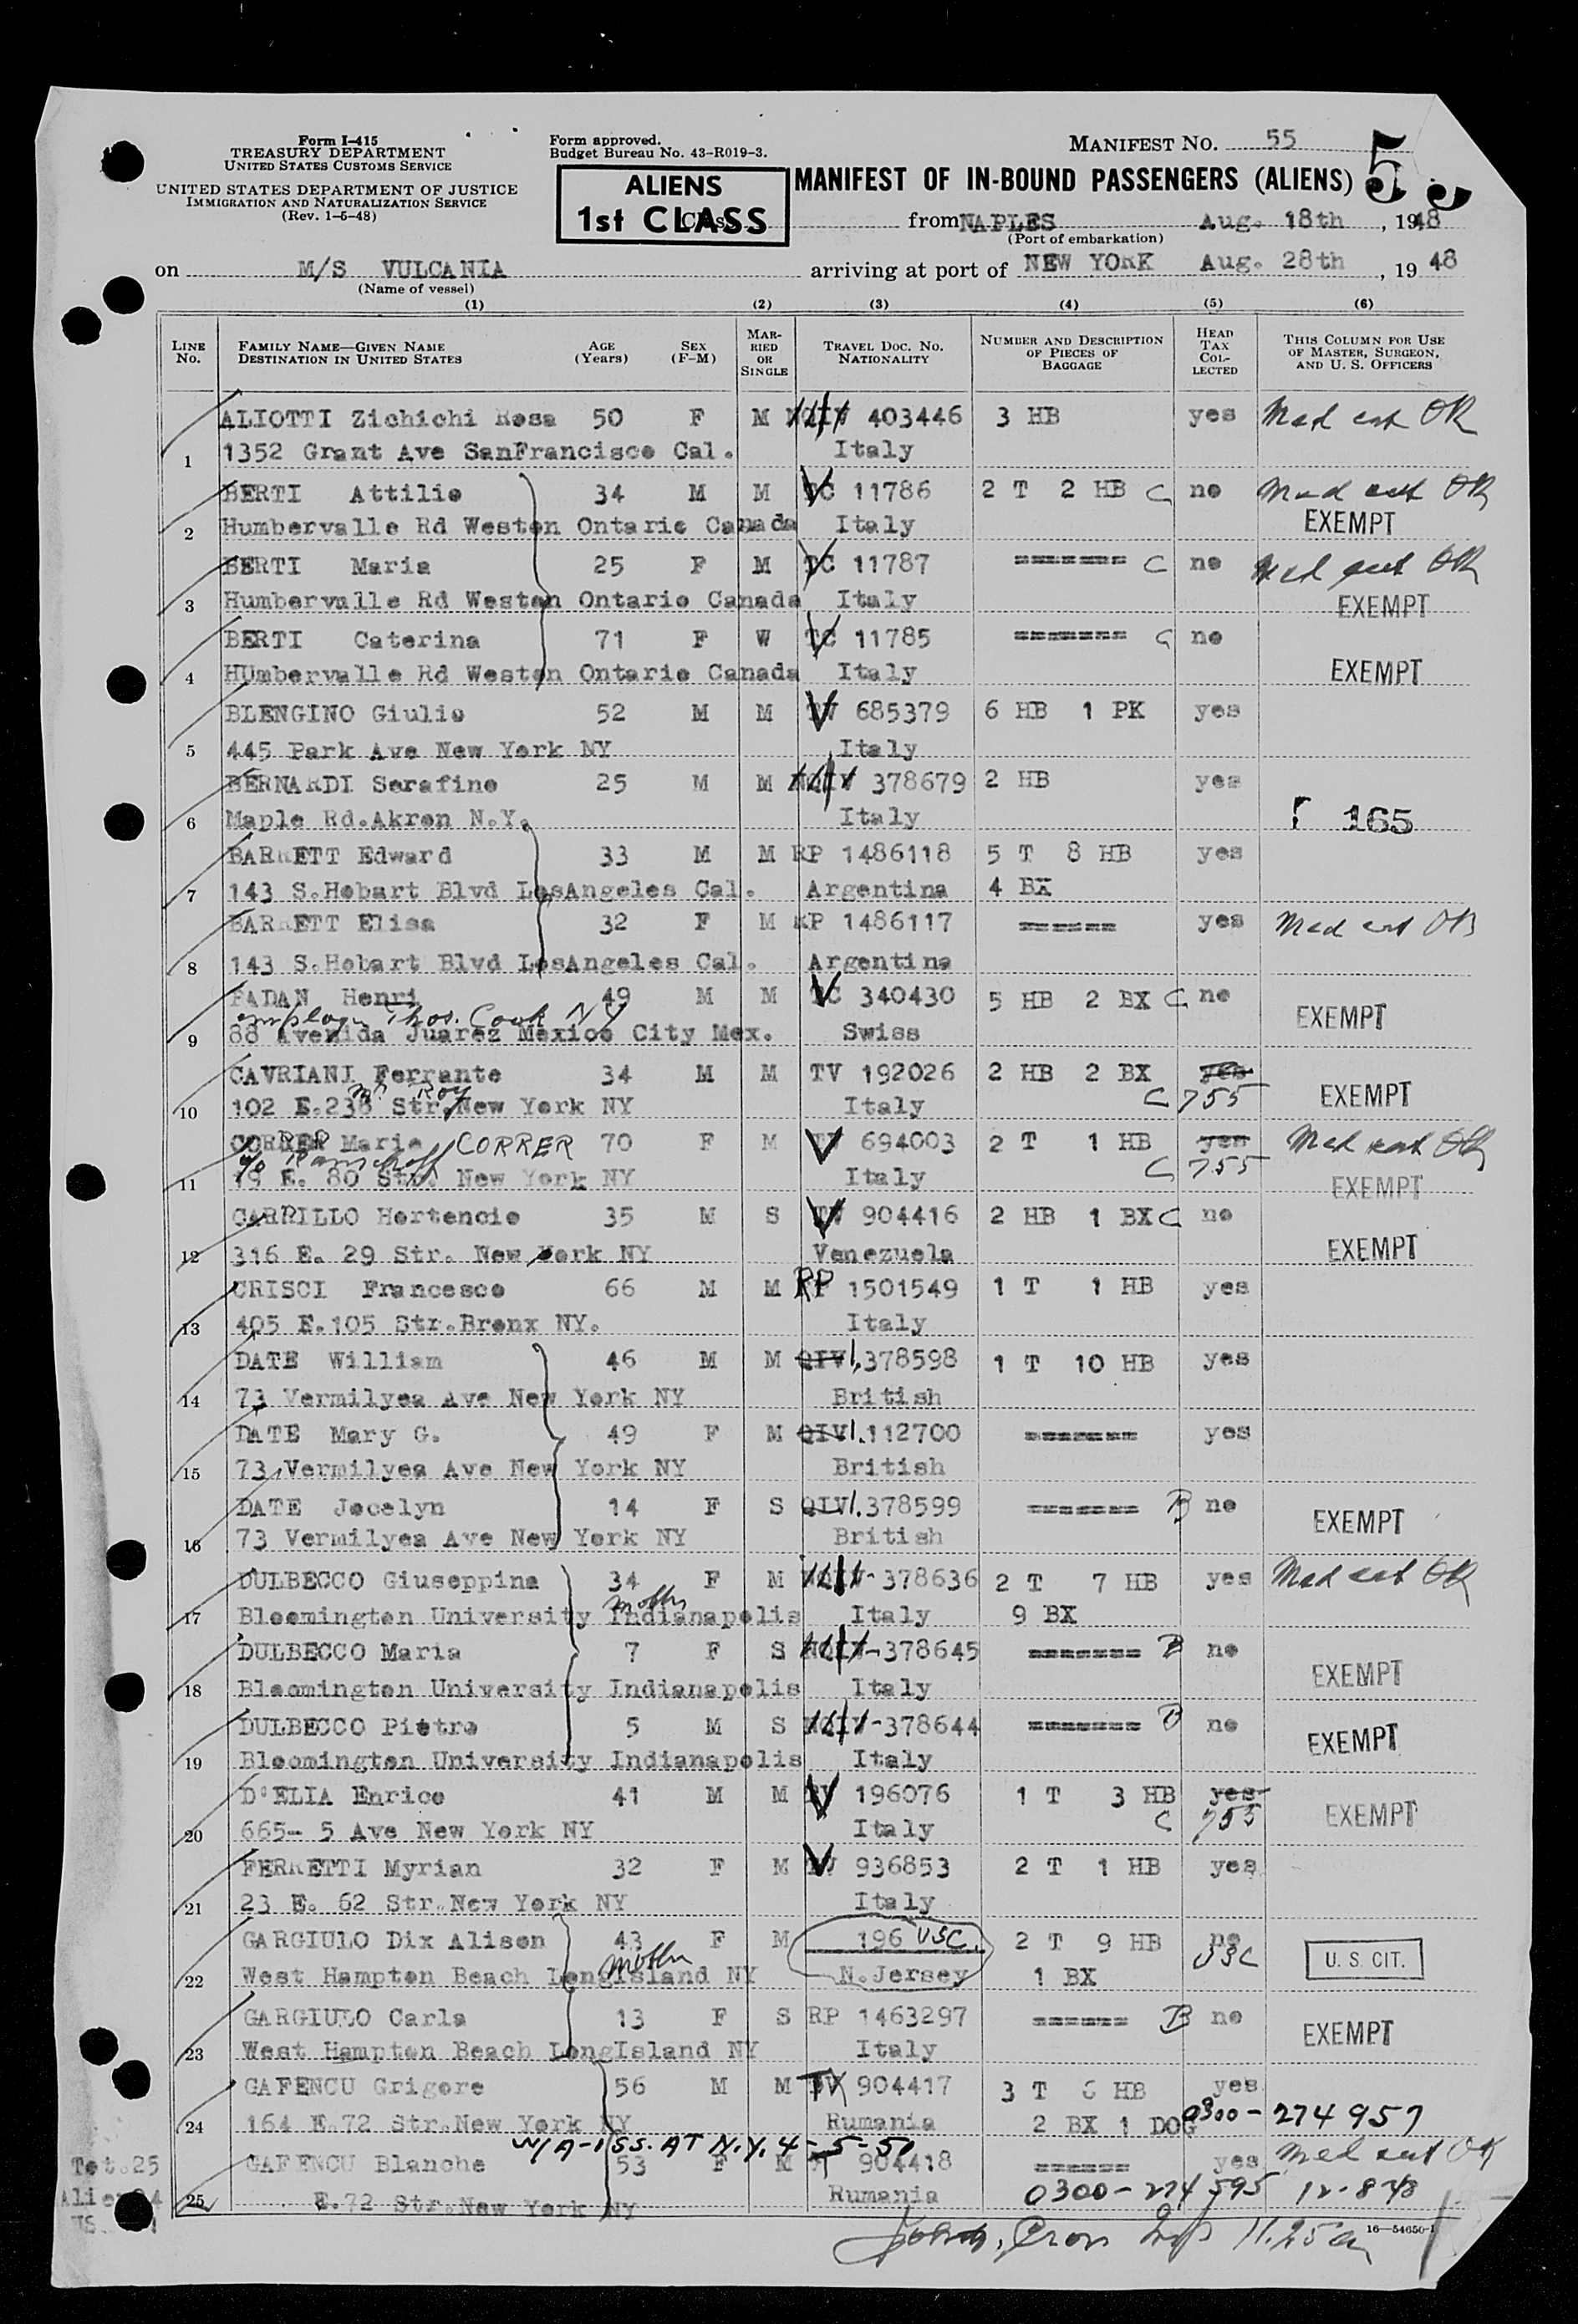 Form I-415
TREASURY DEPARTMENT
UNITED STATES CUSTOMS SERVICE
UNITED STATES DEPARTMENT OF JUSTICE
IMMIGRATION AND NATURALIZATION SERVICE
(Rev. 1-5-48)
Form approved.
Budget Bureau No. 43-R019-3.
MANIFEST NO. 55
55
ALIENS
1st CLASS
MANIFEST OF IN-BOUND PASSENGERS (ALIENS)
from NAPLES Aug. 18th, 1948
(Port of embarkation)
on M/S VULCANIA arriving at port of NEW YORK Aug. 28th, 19 48
(Name of vessel)
(1) (2) (3) (4) (5) (6)
LINE NO. FAMILY NAME—GIVEN NAME DESTINATION IN UNITED STATES AGE (Years) SEX (F-M) MARRIED OR SINGLE TRAVEL DOC. NO. NATIONALITY NUMBER AND DESCRIPTION OF PIECES OF BAGGAGE HEAD TAX COLLECTED THIS COLUMN FOR USE OF MASTER, SURGEON, AND U. S. OFFICERS
ALIOTTI Zichichi Rosa 50 F M 403446 3 HB yes Med cert OK
1 1352 Grant Ave SanFrancisco Cal. Italy
BERTI Attilio 34 M M TC 11786 2 T 2 HB C no Med cert OK
2 Humbervalle Rd Weston Ontario Canada Italy EXEMPT
BERTI Maria 25 F M TC 11787 ======= C no Med cert OK
3 Humbervalle Rd Weston Ontario Canada Italy EXEMPT
BERTI Caterina 71 F W TC 11785 ======= C no
4 HUmbervalle Rd Weston Ontario Canada Italy EXEMPT
BLENGINO Giulio 52 M M TV 685379 6 HB 1 PK yes
5 445 Park Ave New York NY Italy
BERNARDI Serafino 25 M M 378679 2 HB yes
6 Maple Rd.Akron N.Y. Italy 165
BARRETT Edward 33 M M RP 1486118 5 T 8 HB yes
7 143 S.Hobart Blvd LosAngeles Cal. Argentina 4 BX
BARRETT Elisa 32 F M RP 1486117 ====== yes Med cert OK
8 143 S.Hobart Blvd LosAngeles Cal. Argentina
FADAN Henri 49 M M TC 340430 5 HB 2 BX C no EXEMPT
Thos. Cook NY
9 88 Avenida Juarez Mexico City Mex. Swiss
CAVRIANI Ferrante 34 M M TV 192026 2 HB 2 BX yes
10 102 E.238 Str.New York NY Italy C 755 EXEMPT
CORRER Maria CORRER 70 F M TV 694003 2 T 1 HB yes Med cert OK
11 79 E. 80 Str. New York NY Italy C 755 EXEMPT
CARRILLO Hortencio 35 M S TV 904416 2 HB 1 BX C no
12 316 E. 29 Str. New York NY Venezuela EXEMPT
CRISCI Francesco 66 M M RP 1501549 1 T 1 HB yes
13 405 E.105 Str.Bronx NY. Italy
DATE William 46 M M QIV 378598 1 T 10 HB yes
14 73 Vermilyea Ave New York NY British
DATE Mary G. 49 F M QIV 112700 ======= yes
15 73 Vermilyea Ave New York NY British
DATE Jocelyn 14 F S QIV 378599 ======= B no EXEMPT
16 73 Vermilyea Ave New York NY British
DULBECCO Giuseppina 34 F M 378636 2 T 7 HB yes Med cert OK
mother
17 Bloomington University Indianapolis Italy 9 BX
DULBECCO Maria 7 F S 378645 ======= B no
18 Bloomington University Indianapolis Italy EXEMPT
DULBECCO Pietro 5 M S 378644 ======= B no
19 Bloomington University Indianapolis Italy EXEMPT
D'ELIA Enrico 41 M M TV 196076 1 T 3 HB yes EXEMPT
20 665- 5 Ave New York NY Italy C 755
FERRETTI Myrian 32 F M TV 936853 2 T 1 HB yes
21 23 E. 62 Str.New York NY Italy
GARGIULO Dix Alison 43 F M 196 USC. 2 T 9 HB no USC U. S. CIT.
mother
22 West Hampton Beach LongIsland NY N.Jersey 1 BX
GARGIULO Carla 13 F S RP 1463297 ====== B no EXEMPT
23 West Hampton Beach LongIsland NY Italy
GAFENCU Grigore 56 M M TV 904417 3 T 6 HB yes
24 164 E.72 Str.New York NY Rumania 2 BX 1 DOG 0300-274957
N/A-ISS. AT N.Y. 4-5-51
GAFENCU Blanche 53 F M 904418 ====== yes Med cert OK
25 E.72 Str.New York NY Rumania 0300-274595 12-8-48
Tot.25
Alien24
US.
11.25 am
16—54650-1